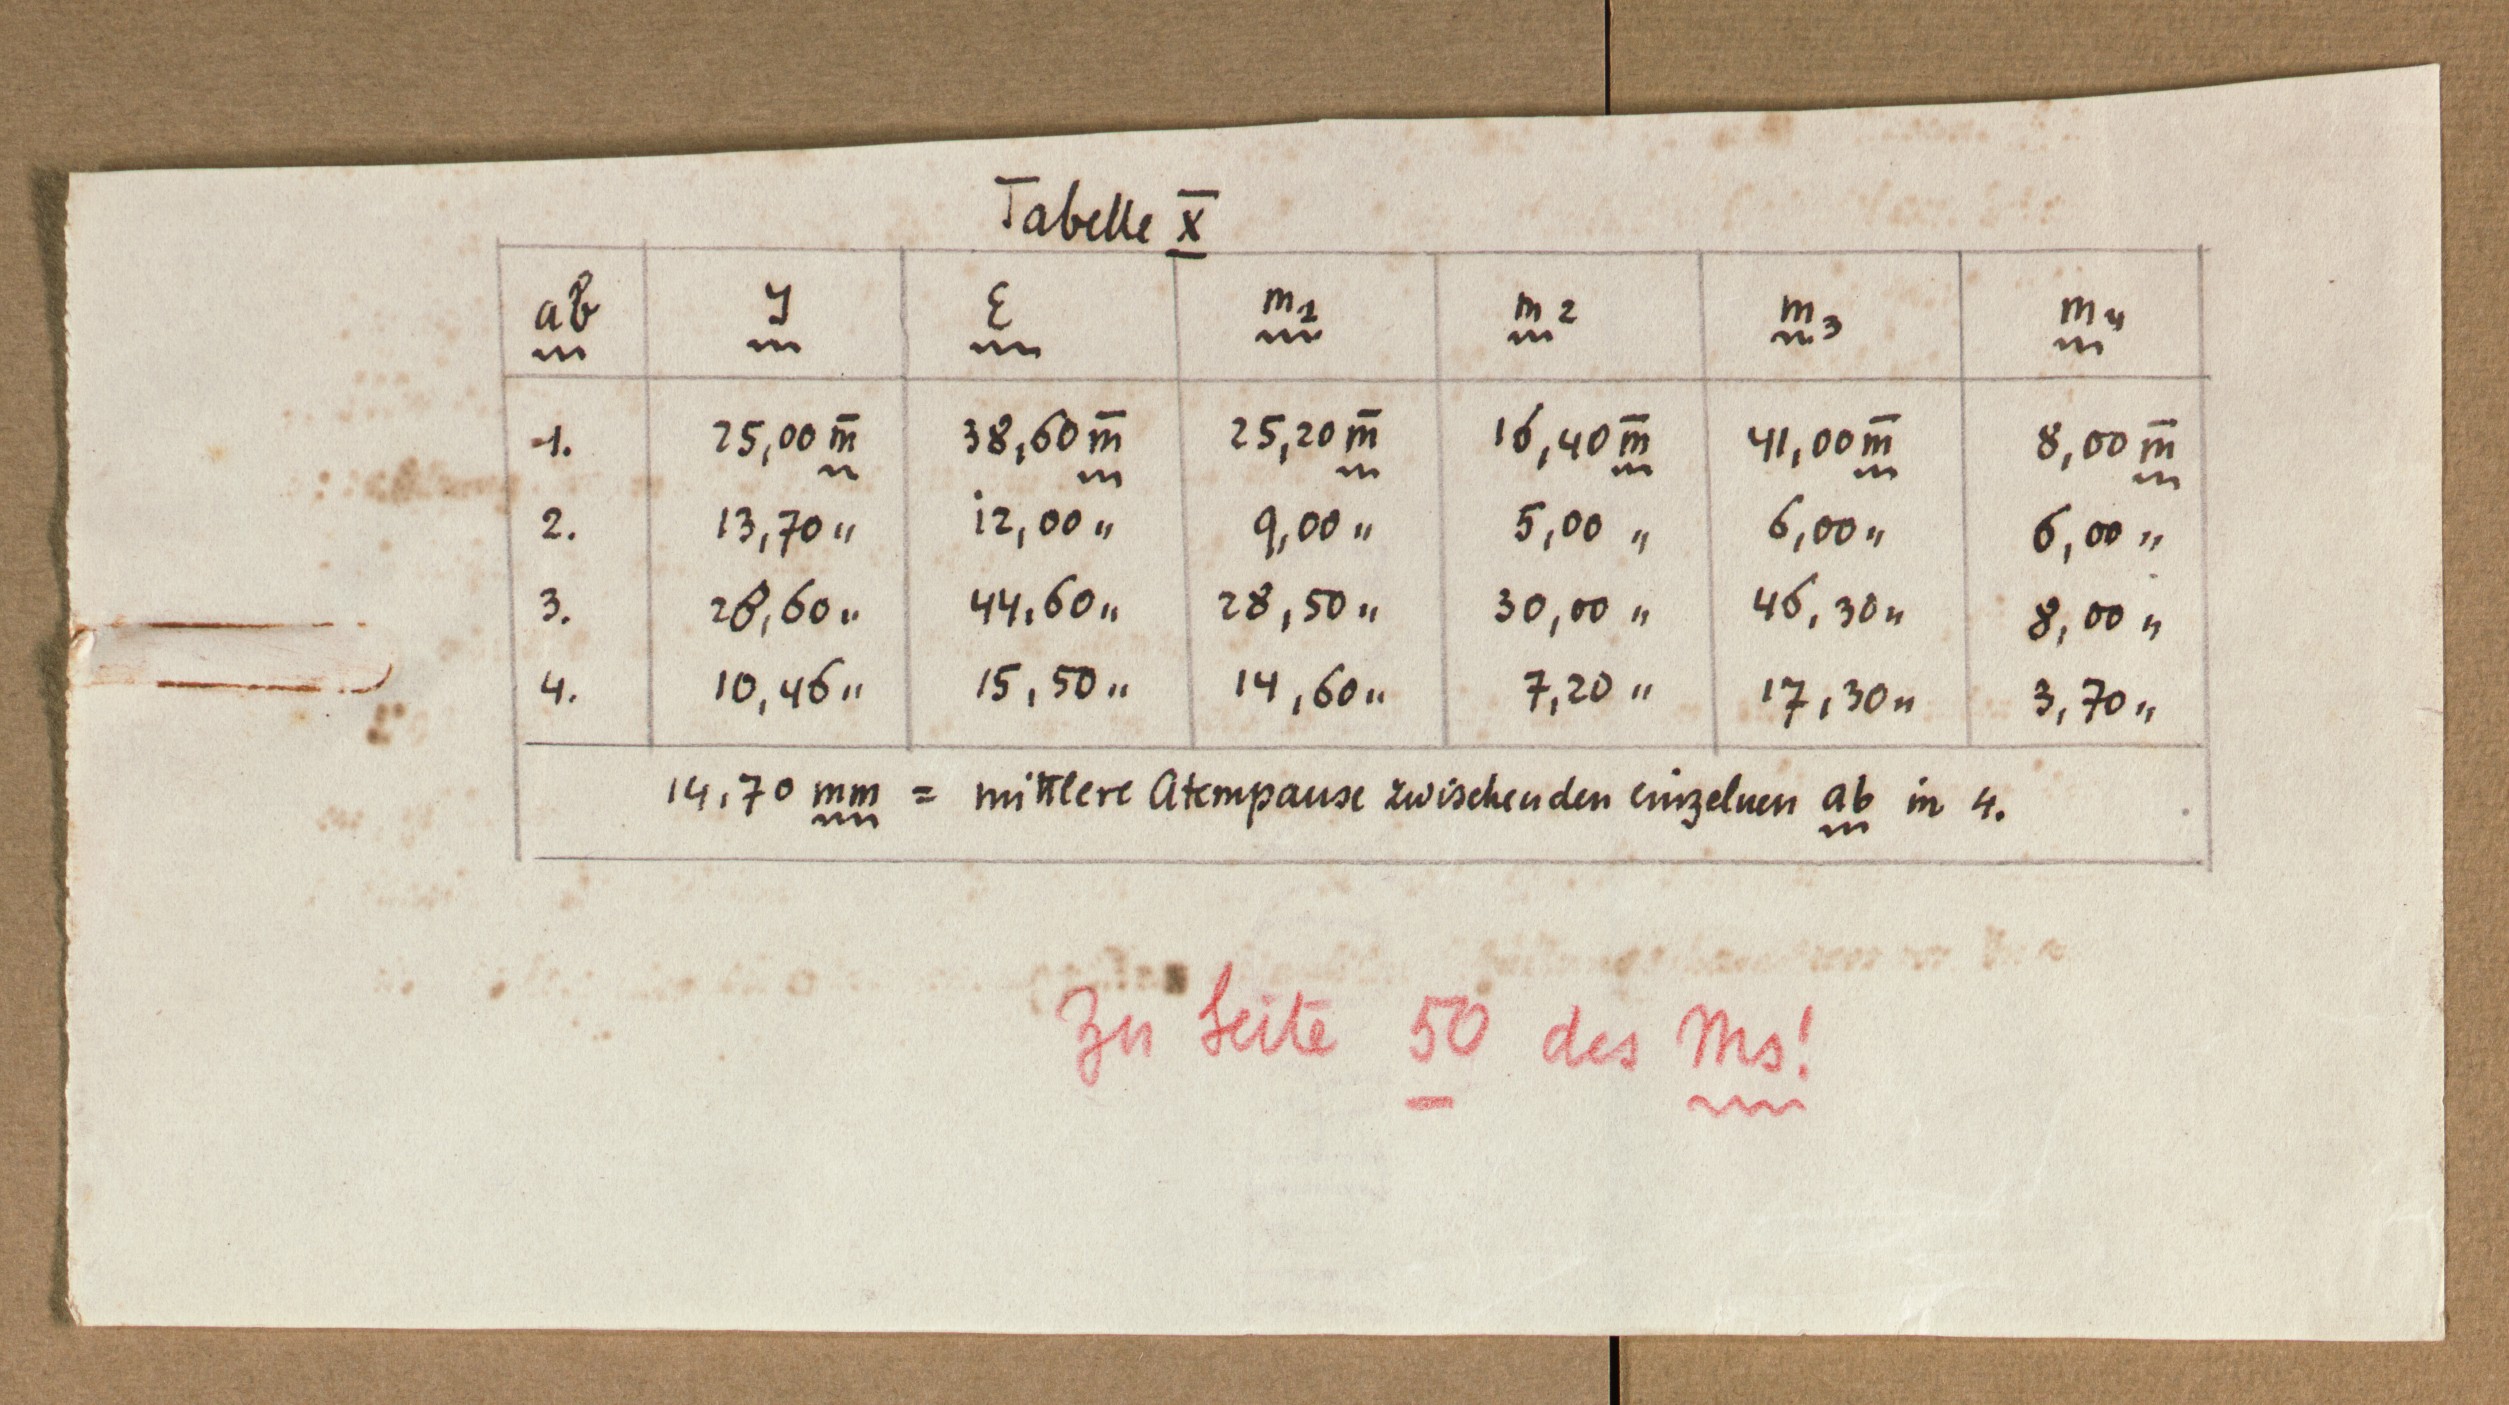 Tabelle X
ab J E m1 m2 m3 m4
1. 25,00 m̅ 38,60 m̅ 25,20 m̅ 16,40 m̅ 41,00 m̅ 8,00 m̅
2. 13,70 " 12,00 " 9,00 " 5,00 " 6,00 " 6,00 "
3. 28,60 " 44,60 " 28,50 " 30,00 " 46,30 " 8,00 "
4. 10,46 " 15,50 " 14,60 " 7,20 " 17,30 " 3,70 "
14,70 mm = mittlere Atempause zwischen den einzelnen ab in 4.
Zu Seite 50 des Ms!